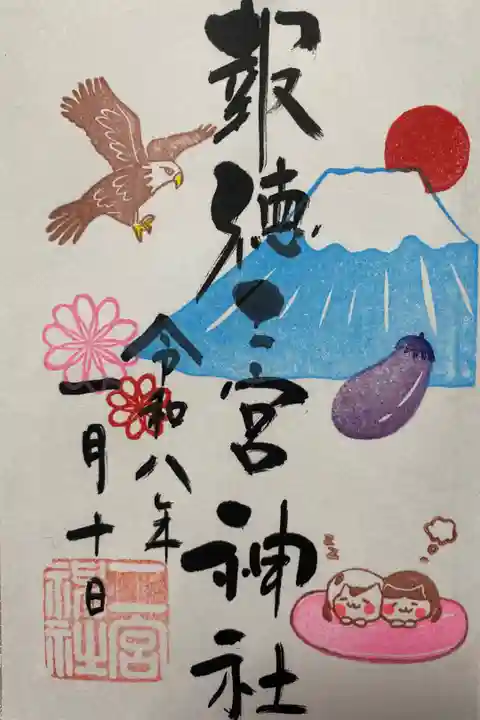 報徳二宮神社
令和八年
一月十日
二宮
神社